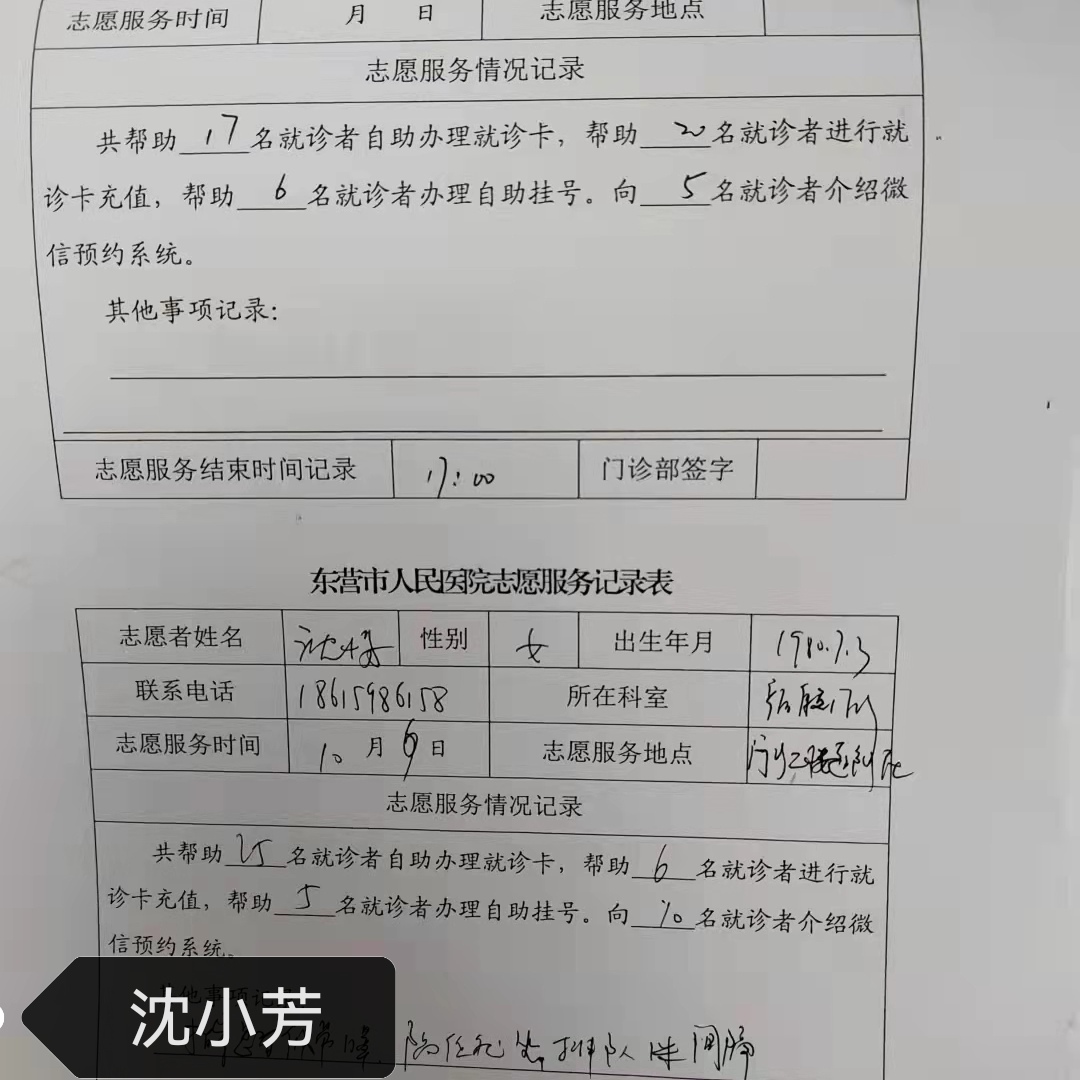 志愿服务时间 月 日 志愿服务地点
志愿服务情况记录
共帮助 17 名就诊者自助办理就诊卡，帮助 20 名就诊者进行就
诊卡充值，帮助 6 名就诊者办理自助挂号。向 5 名就诊者介绍微
信预约系统。
其他事项记录：
志愿服务结束时间记录 17:00 门诊部签字
东营市人民医院志愿服务记录表
志愿者姓名 性别 女 出生年月 1980.7.3
联系电话 18615986158 所在科室
志愿服务时间 10 月 日 志愿服务地点
志愿服务情况记录
共帮助 25 名就诊者自助办理就诊卡，帮助 6 名就诊者进行就
诊卡充值，帮助 5 名就诊者办理自助挂号。向 10 名就诊者介绍微
信预约系统。
沈小芳